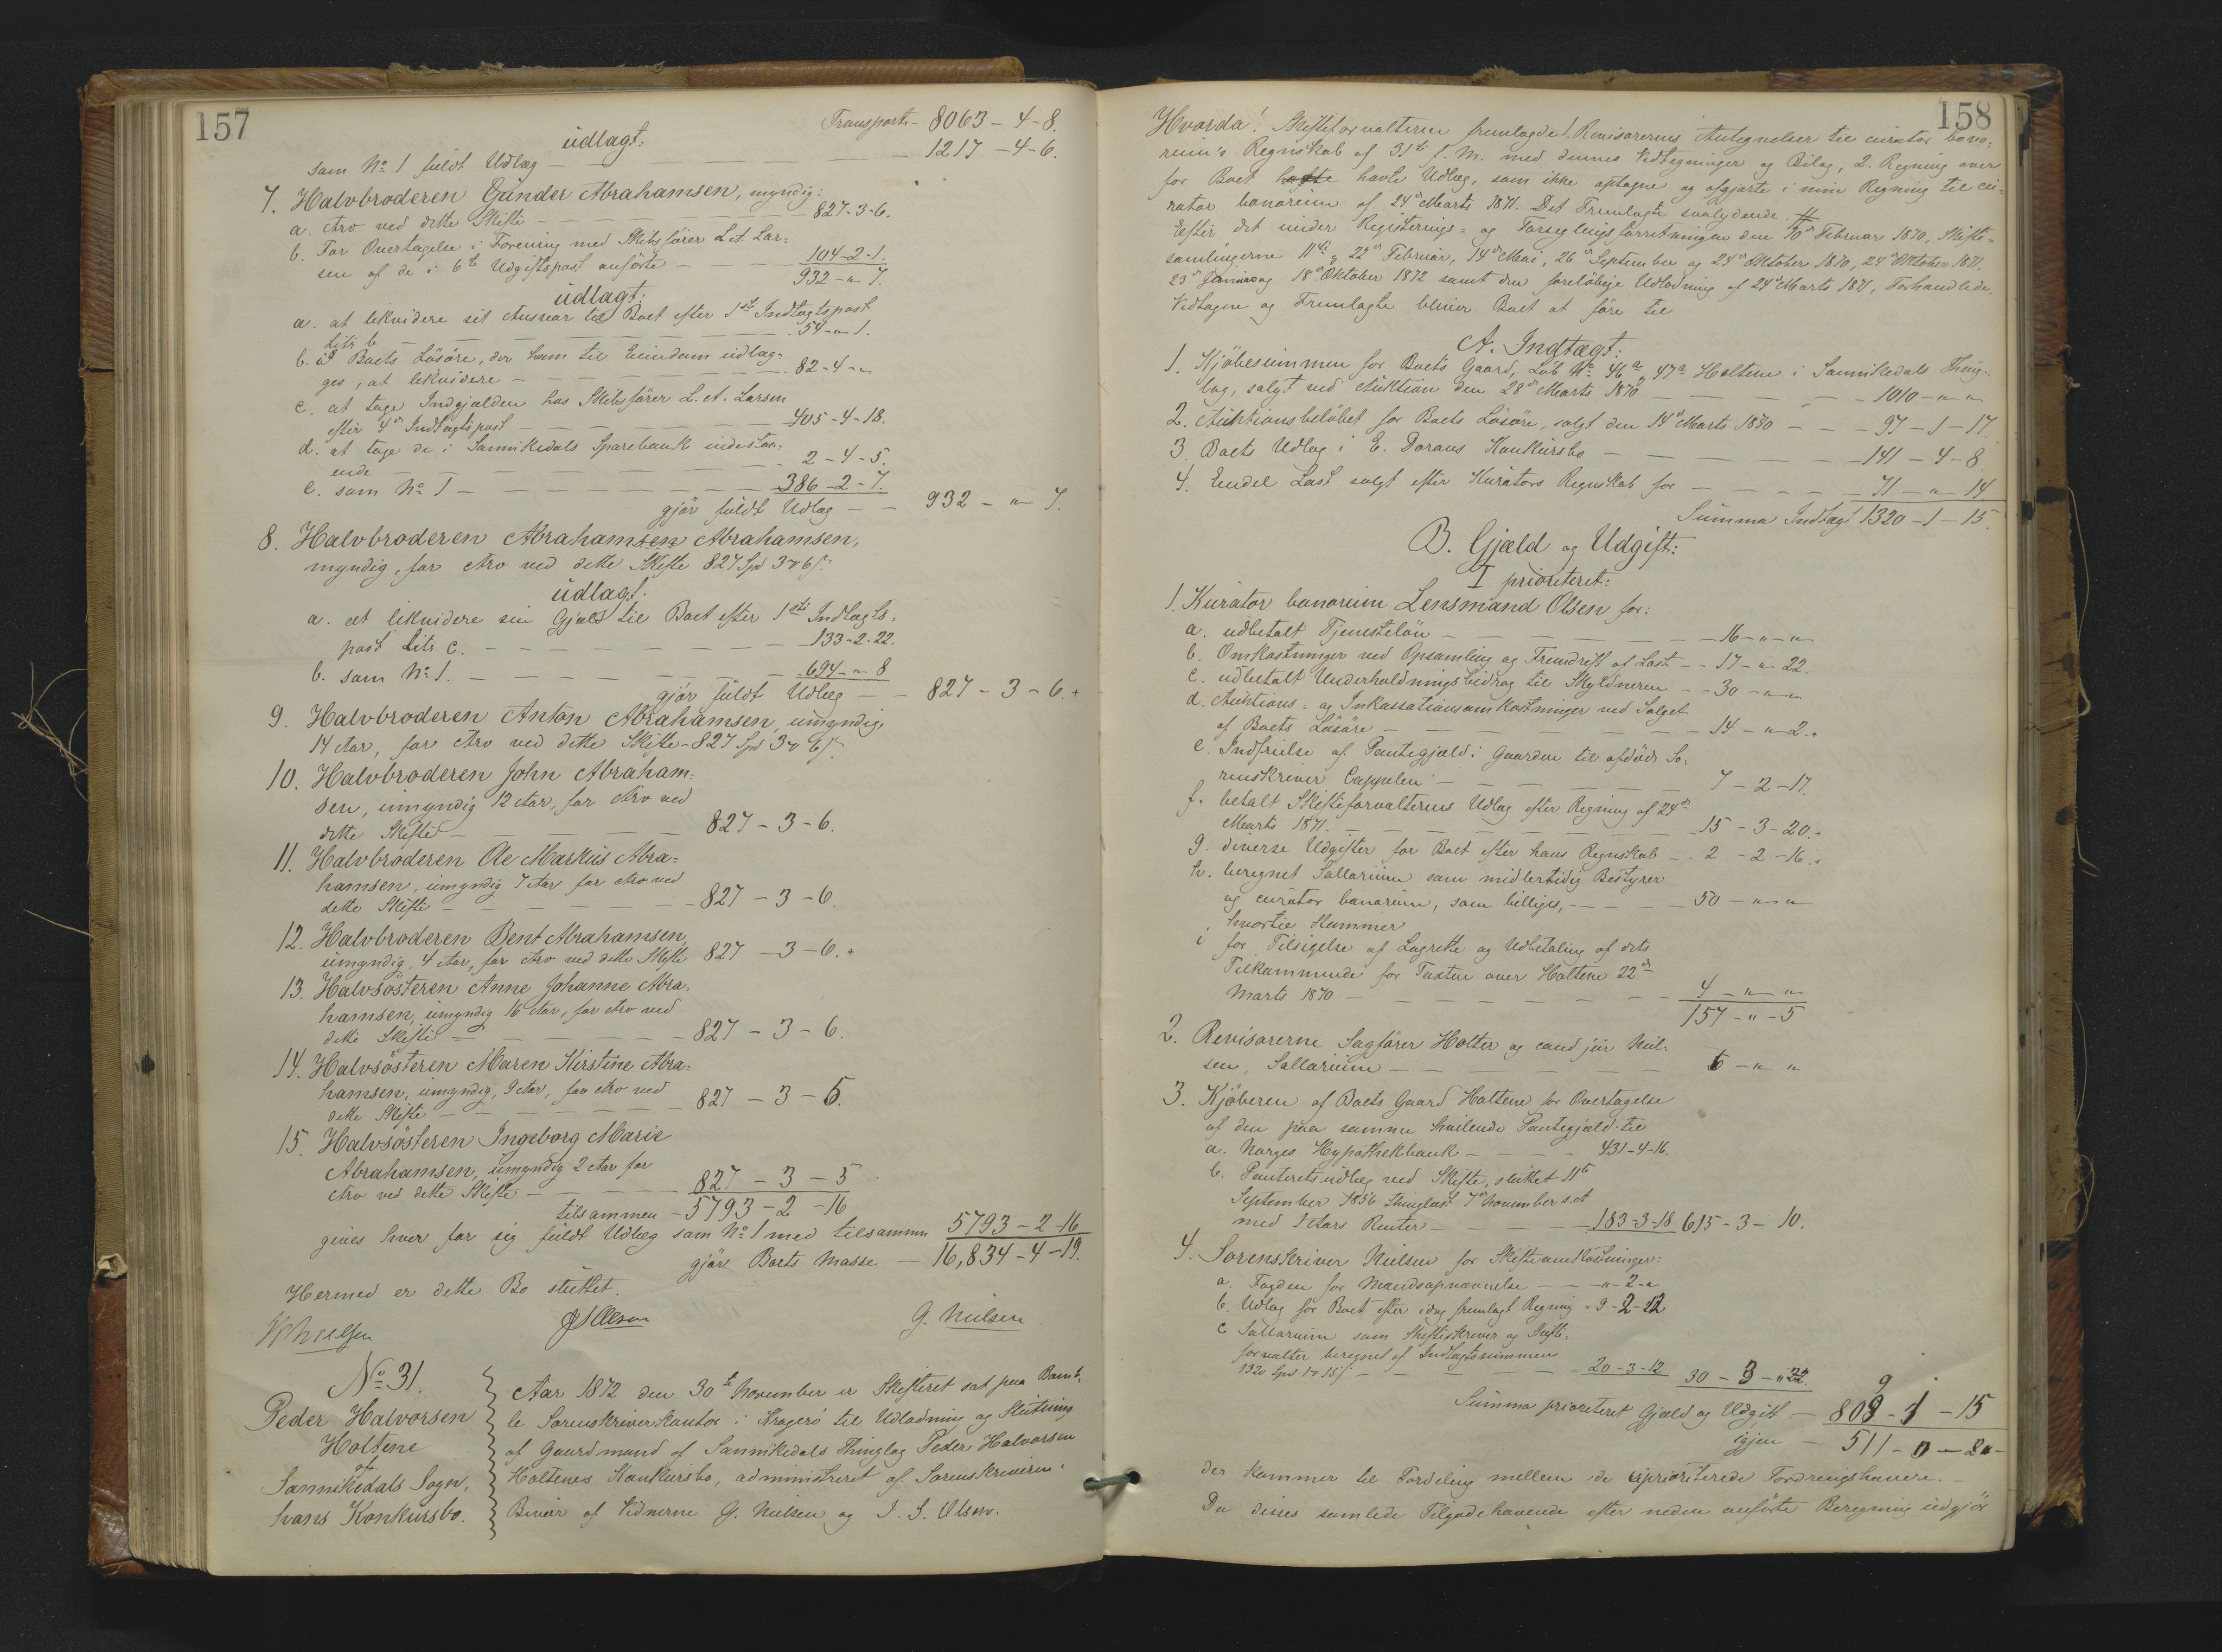 157
Transport - 8063 - 4 - 8.
udlagt:
som No 1 fuldt Udlæg - 1217 - 4 - 6.
7. Halvbroderen Gunder Abrahamsen, myndig:
a. Arv ved dette Skifte - 827 - 3 - 6.
b. For Overtagelse i Forening med Skibsfører L. A. Lar=
sen af de i 6te Udgiftspost anførte - 104 - 2 - 1.
932 - " - 7.
udlagt:
a. at likvidere sit Ansvar til Boet efter 1ste Indtægtspost
Litr b - 54 - " - 1.
b. af Boets Løsøre, der ham til Eiendom udlæg=
ges, at likvidere - 82 - 4 - "
c. at tage Indgjælden hos Skibsfører L. A. Larsen
efter 4de Indtægtspost - 405 - 4 - 18.
d. at tage de i Sannikedals Sparebank indestaa=
ende - 2 - 4 - 5.
e. som No 1 - 386 - 2 - 7.
gjør fuldt Udlæg - 932 - " - 7.
8. Halvbroderen Abrahamsen Abrahamsen,
myndig, for Arv ved dette Skifte 827 Spd 3 " 6 s.
udlagt:
a. at likvidere sin Gjæld til Boet efter 1ste Indtægts=
post Litr c. - 133 - 2 - 22.
b. som No 1. - 694 - " - 8
gjør fuldt Udlæg - 827 - 3 - 6.
9. Halvbroderen Anton Abrahamsen, umyndig,
14 Aar, for Arv ved dette Skifte - 827 Spd 3 " 6 s.
10. Halvbroderen John Abraham=
sen, umyndig 12 Aar, for Arv ved
dette Skifte - 827 - 3 - 6.
11. Halvbroderen Ole Markus Abra=
hamsen, umyndig 7 Aar for Arv ved
dette Skifte - 827 - 3 - 6.
12. Halvbroderen Bent Abrahamsen,
umyndig, 4 Aar, for Arv ved dette Skifte 827 - 3 - 6.
13. Halvsøsteren Anne Johanne Abra=
hamsen, umyndig 16 Aar, for Arv ved
dette Skifte - 827 - 3 - 6.
14. Halvsøsteren Maren Kirstine Abra=
hamsen, umyndig, 9 Aar, for Arv ved
dette Skifte - 827 - 3 - 5.
15. Halvsøsteren Ingeborg Marie
Abrahamsen, umyndig 2 Aar for
Arv ved dette Skifte - 827 - 3 - 5
tilsammen - 5793 - 2 - 16
gives hver for sig fuldt Udlæg som No 1 med tilsammen 5793 - 2 - 16
gjør Boets Masse - 16,834 - 4 - 19.
Hermed er dette Bo sluttet.
Nielsen J S Olsen G. Nielsen
No 31.
Peder Halvorsen
Holtene
af
Sannikedals Sogn,
hans Konkursbo.
Aar 1872 den 30te November er Skifteret sat paa Bamb=
le Sorenskriverkontor i Kragerø til Udlodning og Slutning
af Gaardmand af Sannikedals Thinglag Peder Halvorsen
Holtenes Konkursbo, administreret af Sorenskriveren.
Bivær af Vidnerne G. Nielsen og J. S. Olsen.
158
Hvorda! Skifteforvalteren fremlagde 1. Revisorernes Antegnelser til curator bono=
rum's Regnskab af 31te f. M. med dennes Vidtegninger og Bilag, 2. Regning over
for Boet hafte havte Udlæg, som ikke optagne og afgjorte i min Regning til cu=
rator bonorum af 24de Marts 1871. Det Fremlagte saalydende. #
Efter det under Registerings= og Forseglingsforretningen den 10de Februar 1870, Skifte=
samlingerne 11te og 22de Februar, 14de Mai, 26de September og 24de Oktober 1870, 24de Oktober 1871,
23de Januar og 18de Oktober 1872 samt den foreløbige Udlodning af 24de Marts 1871, Forhandlede,
Vidtagne og Fremlagte bliver Boet at føre til
A. Indtægt:
1. Kjøbesummen for Boets Gaard, Løb No 46a, 47a Holtene i Sannikedals Thing=
lag, solgt ved Auktion den 28de Marts 1870 - 1010 - " - "
2. Auktionsbeløbet for Boets Løsøre, solgt den 14de Marts 1870 - 97 - 1 - 17.
3. Boets Udlæg i E. Dorans Konkursbo - 141 - 4 - 8.
4. Endel Last solgt efter Kurators Regnskab for - 71 - " - 14
Summa Indtægt 1320 - 1 - 15.
B. Gjæld og Udgift:
I prioriteret:
1. Kurator bonorum Lensmand Olsen for:
a. udbetalt Tjenesteløn - 16 - " - "
b. Omkostninger ved Opsamling og Fremdrift af Last - 17 - " - 22.
c. udbetalt Underholdningsbidrag til Skyldneren - 30 - " - "
d. Auktions= og Inkassationsomkostninger ved Salget
af Boets Løsøre - 14 - " - 2.
e. Indfrielse af Pantegjæld i Gaarden til afdøde So=
renskriver Cappelen - 7 - 2 - 17.
f. betalt Skifteforvalterens Udlæg efter Regning af 24de
Marts 1871. - 15 - 3 - 20.
g. diverse Udgifter for Boet efter hans Regnskab - 2 - 2 - 16.
h. beregnet Sallarium som midlertidig Bestyrer
og curator bonorum, som billiges, - 50 - " - "
hvortil kommer
i for Tilsigelse af Lagrette og Udbetaling af dets
Tilkommende for Taxten over Holtene 22de
Marts 1870 - 4 - " - "
157 - " - 5
2. Revisorerne Sagfører Holter og cand jur Niel=
sen, Sallarium - 6 - " - "
3. Kjøberen af Boets Gaard Holtene for Overtagelse
af den paa samme hvilende Pantegjæld til
a. Norges Hypothekbank - 431 - 4 - 16.
b. Panteretsudlæg ved Skifte, sluttet 11te
September 1856 thinglæst 7de November s. A
med 1 Aars Renter - 183 - 3 - 18 615 - 3 - 10.
4. Sorenskriver Nielsen for Skifteomkostninger:
a. Fogden for Mandsopnævnelse - " - 2 - "
b. Udlæg for Boet efter idag fremlagt Regning - 9 - 2 - 12
c Sallarium som Skifteskriver og Skifte=
forvalter beregnet af Indtægtssummen
1320 Spd 1 " 15 s - 20 - 3 - 12 30 - 3 - 22.
Summa prioriteret Gjæld og Udgift - 809 - 1 - 15
igjen - 511 - 0 - "
der kommer til Fordeling mellem de uprioriterede Fordringshavere.
Da disses samlede Tilgodehavende efter neden anførte Beregning udgjør